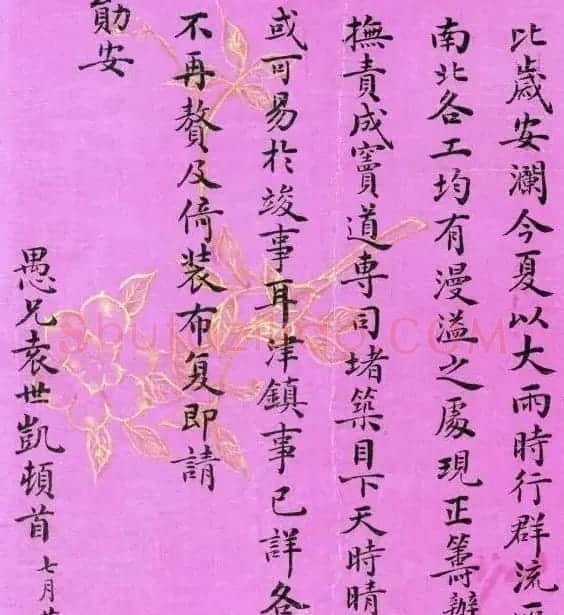 比歲安瀾今夏以大雨時行群流
南北各工均有漫溢之處現正籌辦
撫責成竇道專司堵築目下天時晴
或可易於竣事耳津鎮事已詳各
不再贅及倚裝布复即請
勛安
愚兄袁世凱頓首 七月
ShuFaZiDian.COM